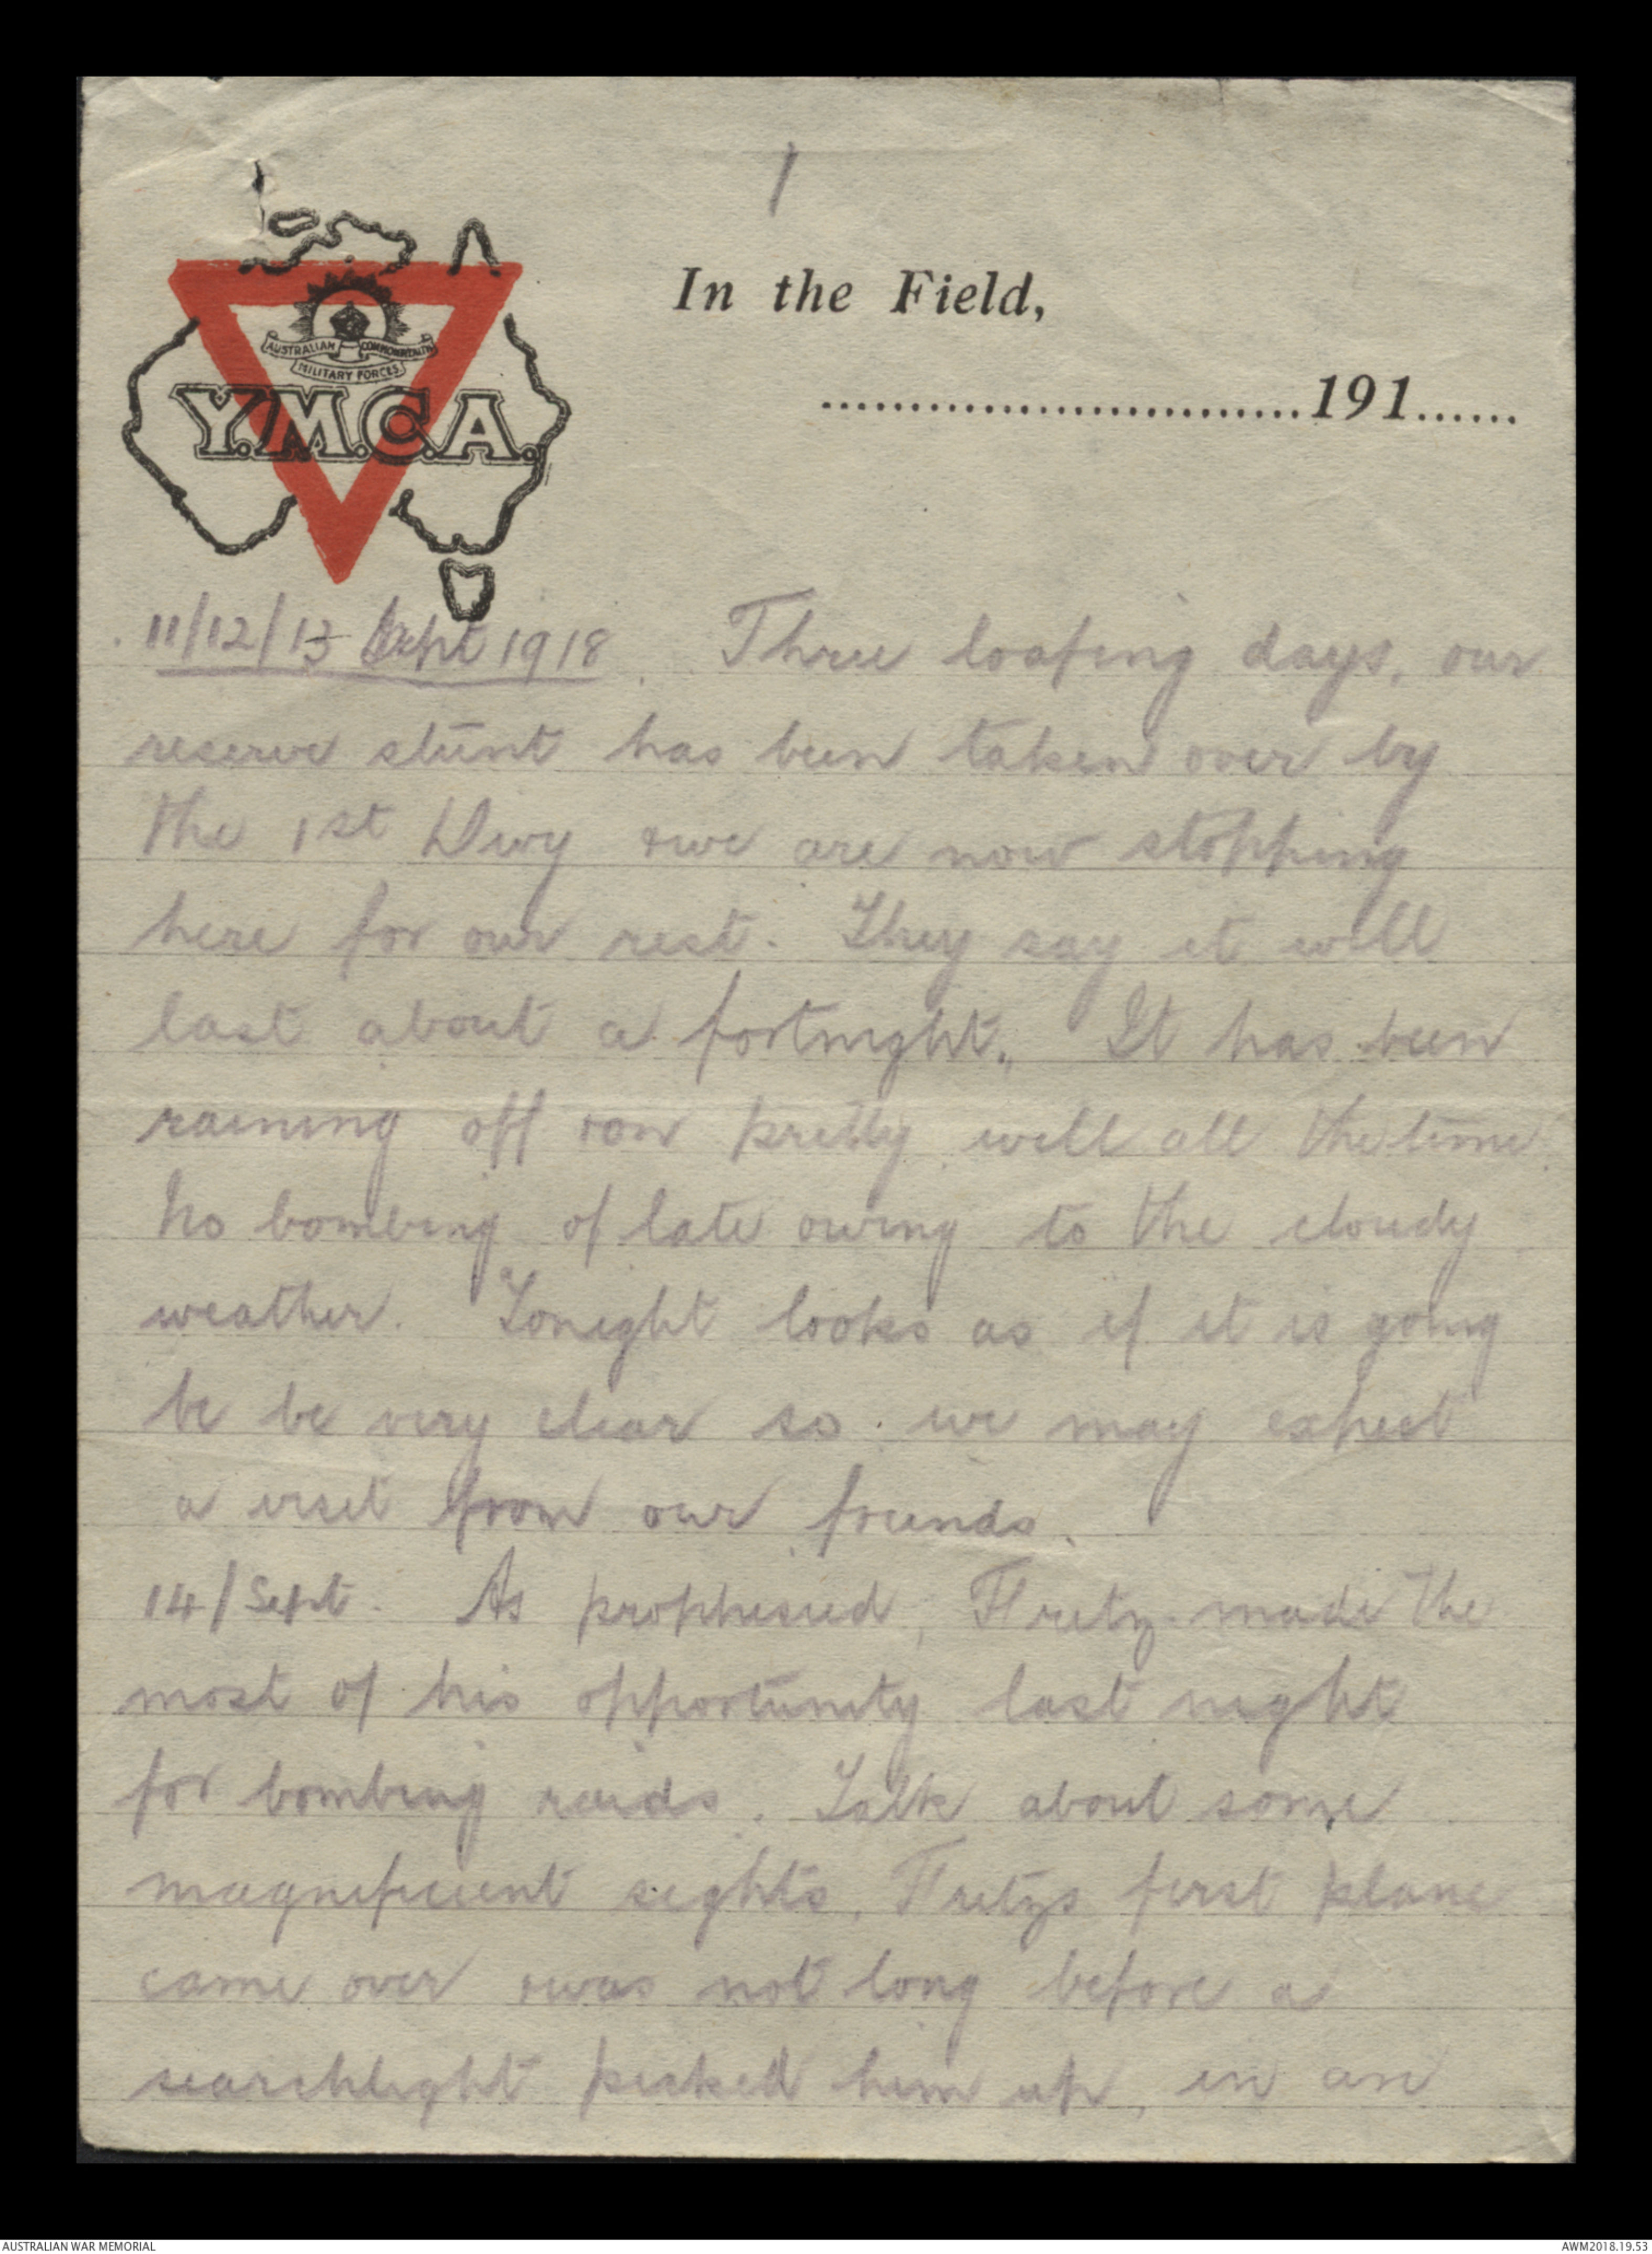 1
In the Field,
AUSTRALIAN COMMONWEALTH
MILITARY FORCES
Y.M.C.A.
..............................191......
11/12/13 Sept 1918. Three loafing days, our
reserve stunt has been taken over by
the 1st Divy & we are now stopping
here for our rest. They say it will
last about a fortnight. It has been
raining off & on pretty well all the time.
No bombing of late owing to the cloudy
weather. Tonight looks as if it is going
be be very clear so we may expect
a visit from our friends.
14/Sept. As prophesied, Fritz made the
most of his opportunity last night
for bombing raids. Talk about some
magnificient sights, Fritzs first plane
came over & was not long before a
searchlight picked him up, in an
AUSTRALIAN WAR MEMORIAL
AWM2018.19.53